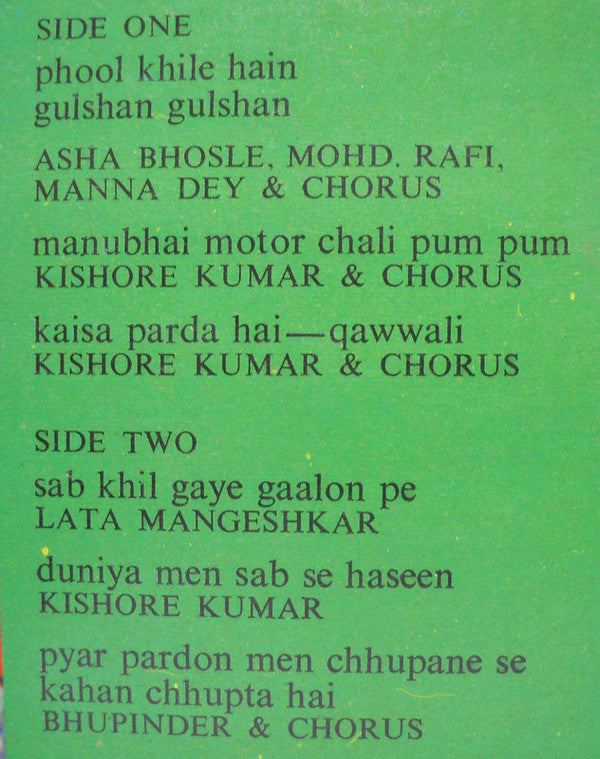 SIDE ONE
phool khile hain
gulshan gulshan
ASHA BHOSLE, MOHD. RAFI,
MANNA DEY & CHORUS
manubhai motor chali pum pum
KISHORE KUMAR & CHORUS
kaisa parda hai—qawwali
KISHORE KUMAR & CHORUS
SIDE TWO
sab khil gaye gaalon pe
LATA MANGESHKAR
duniya men sab se haseen
KISHORE KUMAR
pyar pardon men chhupane se
kahan chhupta hai
BHUPINDER & CHORUS